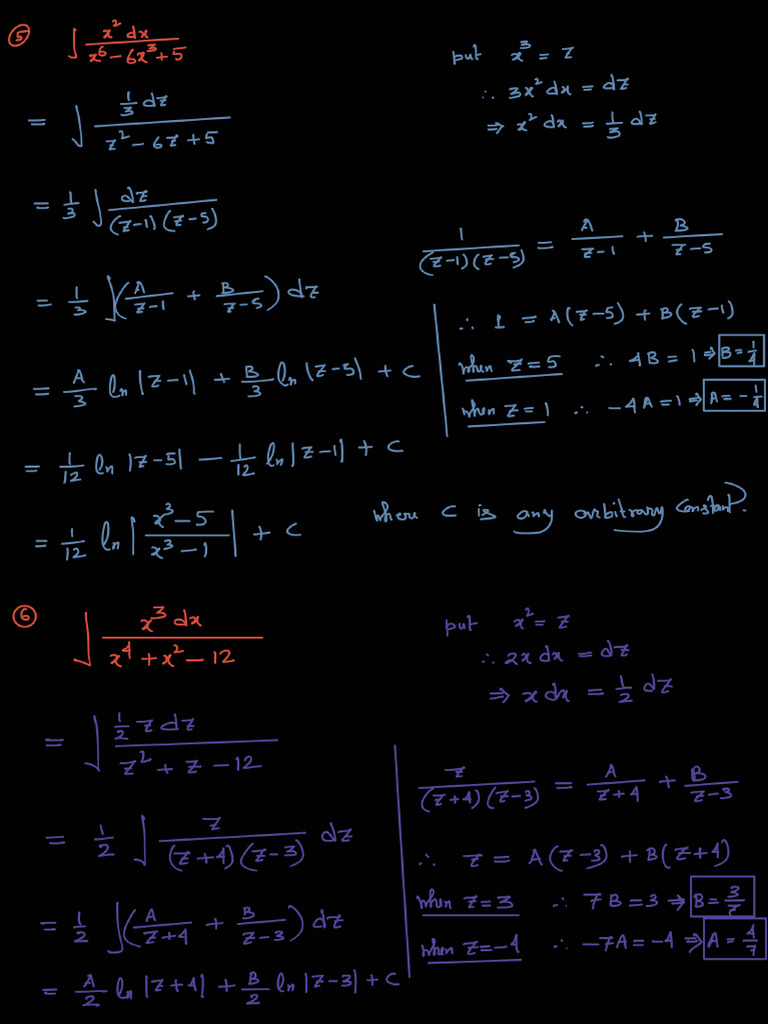 ⑤ ∫ x² dx / (x⁶ − 6x³ + 5)
put x³ = z
∴ 3x² dx = dz
⇒ x² dx = 1/3 dz
= ∫ (1/3 dz) / (z² − 6z + 5)
= 1/3 ∫ dz / ((z−1)(z−5))
1 / ((z−1)(z−5)) = A/(z−1) + B/(z−5)
= 1/3 ∫ (A/(z−1) + B/(z−5)) dz
∴ 1 = A(z−5) + B(z−1)
when z=5 ∴ 4B = 1 ⇒ B = 1/4
when z=1 ∴ −4A = 1 ⇒ A = −1/4
= A/3 ln |z−1| + B/3 ln |z−5| + C
= 1/12 ln |z−5| − 1/12 ln |z−1| + C
= 1/12 ln | (x³−5) / (x³−1) | + C where C is any arbitrary constant.
⑥ ∫ x³ dx / (x⁴ + x² − 12)
put x² = z
∴ 2x dx = dz
⇒ x dx = 1/2 dz
= ∫ (1/2 z dz) / (z² + z − 12)
= 1/2 ∫ z / ((z+4)(z−3)) dz
z / ((z+4)(z−3)) = A/(z+4) + B/(z−3)
∴ z = A(z−3) + B(z+4)
when z=3 ∴ 7B = 3 ⇒ B = 3/7
when z=−4 ∴ −7A = −4 ⇒ A = 4/7
= 1/2 ∫ (A/(z+4) + B/(z−3)) dz
= A/2 ln |z+4| + B/2 ln |z−3| + C